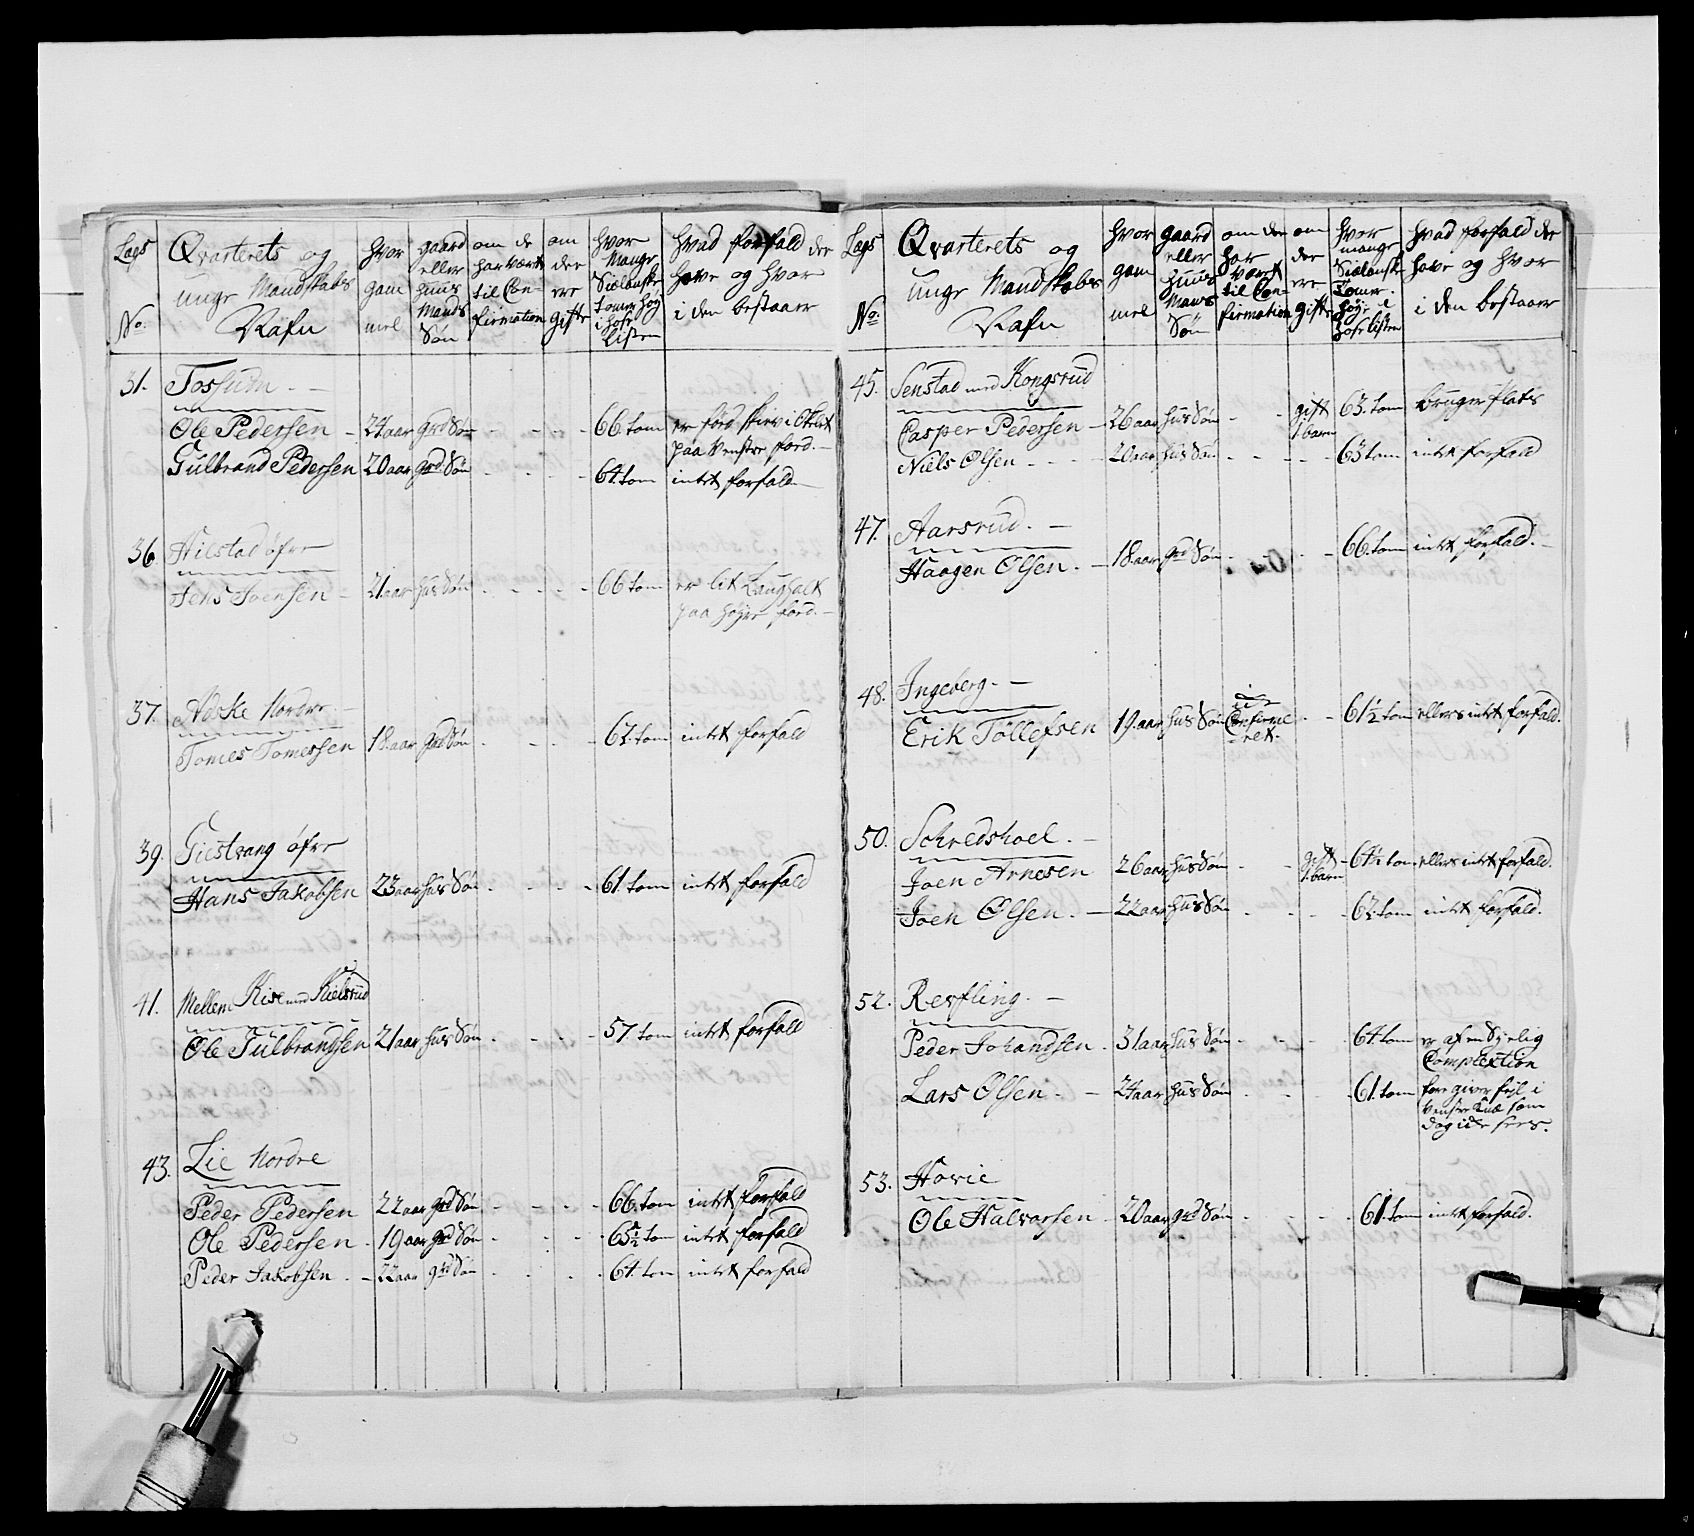 Legs No: | Qvarterets og unge Mandskabs Nafn | hvor gam mel | gaard eller huus Mands Søn | om de har vært til Con- firmation | om der ere gifte | hvor Mange Siælanske tomer høy i hose listen | hvad forfald der have og hvor i den bestaaer
31. Tossum. -
Ole Pedersen - 24 aar grd Søn - - - - 66 tom er
paa Venstre
Gulbrand Pedersen 20 aar grd Søn - - - - 64. tom intet forfald
36 øfre
Jens Joensen - 21 aar hus Søn - - - - 66 tom er lit
paa høyre
37. Nordre -
Tomes Tomessen 18. aar grd Søn - - - - 62. tom intet forfald
39. Giestvang øfre
Hans Jakobsen 23 aar hus Søn - - - - 61. tom intet forfald
41. Mellem Rise med Kielsrud
Ole Gulbrandsen 21 aar hus Søn - - - - 57. tom intet forfald
43. Lie Nordre
Peder Pedersen 22 aar grd Søn - - - - 66. tom intet forfald
Ole Pedersen - 19 aar grd Søn - - - - 65½ tom intet forfald
Peder Jakobsen - 22 aar grd Søn - - - - 64. tom intet forfald
Legs No: | Qvarterets og unge Mandskabs Nafn | hvor gam mel | gaard eller huus Mans Søn | om der har vært til Con- firmation | om der ere gifte | hvor mange Siælanske tomer høye i hose listen | hvad forfald der have og hvor i den bestaaer
45. Senstad med Kongsrud
Casper Pedersen - 26 aar hus Søn - - gift 1 barn 63. tom bruger Plads
Niels Olsen - - - - 20 aar hus Søn - - - - 63 tom intet forfald
47. Aarsrud. -
Haagen Olsen. - 18. aar grd Søn - - - - 66. tom intet forfald. -
48. Ingeberg. -
Erik Tollefsen 19. aar hus Søn Conferme ret. - - 61½ tom ellers intet forfald.
50. Schredshoel. -
Joen Arnesen 26 aar hus Søn - - gift 1. barn 64½ tom. ellers intet forfald.
Joen Olsen. - 22 aar hus Søn - - - - 62. tom intet forfald.
52. Refling. -
Peder Johandsen - 31 aar hus Søn - - - - 64. tom er af en Syelig
Complextion
Lars Olsen. - - 24 aar hus Søn - - - - 61. tom foregiver feyl i
Venstre Knæ som
dog icke sees.
53. Hovie
Ole Halvorsen - 20 aar grd Søn - - - - 61. tom intet forfald.